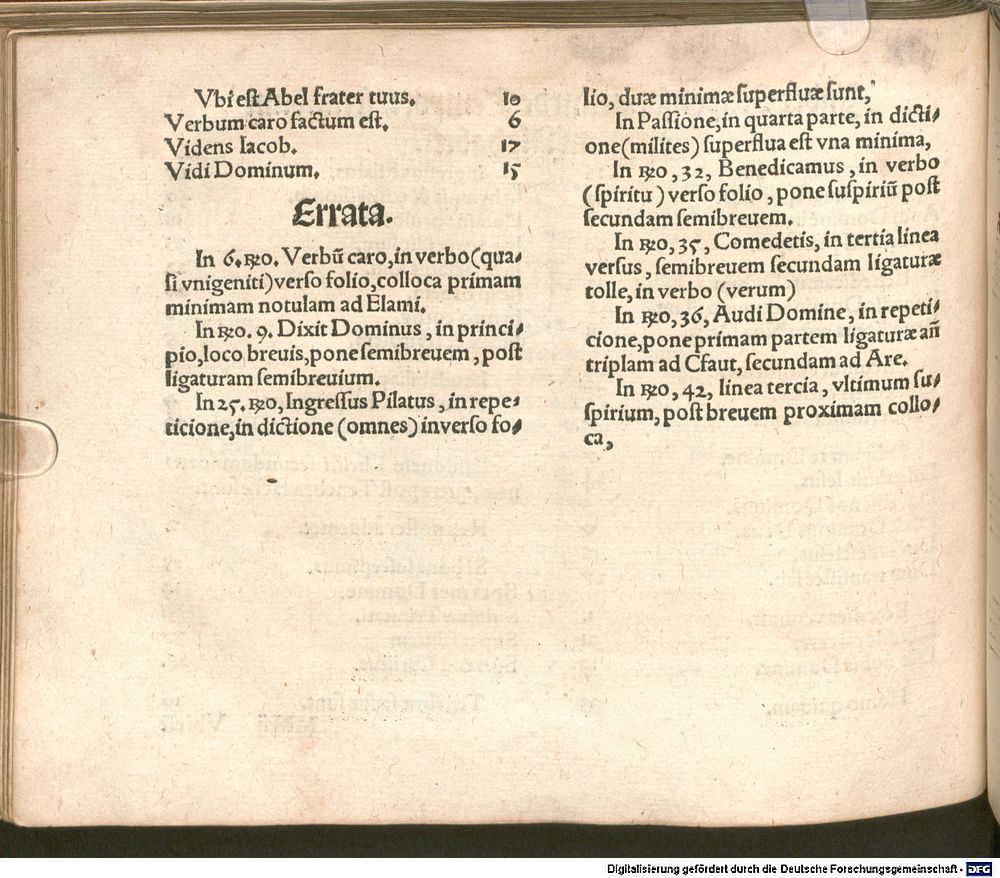 Vbi eſt Abel frater tuus. 10
Verbum caro factum eſt. 6
Videns Iacob. 17
Vidi Dominum. 15
Errata.
In 6. ꝶo. Verbũ caro, in verbo (qua⸗
ſi vnigeniti) verſo folio, colloca primam
minimam notulam ad Elami.
In ꝶo. 9. Dixit Dominus, in princi⸗
pio, loco breuis, pone ſemibreuem, poſt
ligaturam ſemibreuium.
In 25. ꝶo, Ingreſſus Pilatus, in repe⸗
ticione, in dictione (omnes) in verſo fo⸗
lio, duæ minimæ ſuperfluæ ſunt,
In Paſſione, in quarta parte, in dicti⸗
one (milites) ſuperflua eſt vna minima,
In ꝶo, 32, Benedicamus, in verbo
(ſpiritu) verſo folio, pone ſuſpiriũ poſt
ſecundam ſemibreuem.
In ꝶo, 35, Comedetis, in tertia linea
verſus, ſemibreuem ſecundam ligaturæ
tolle, in verbo (verum)
In ꝶo, 36, Audi Domine, in repeti⸗
cione, pone primam partem ligaturæ añ
triplam ad Cfaut, ſecundam ad Are.
In ꝶo, 42, linea tercia, vltimum ſu⸗
ſpirium, poſt breuem proximam collo⸗
ca,
Digitalisierung gefördert durch die Deutsche Forschungsgemeinschaft - DFG